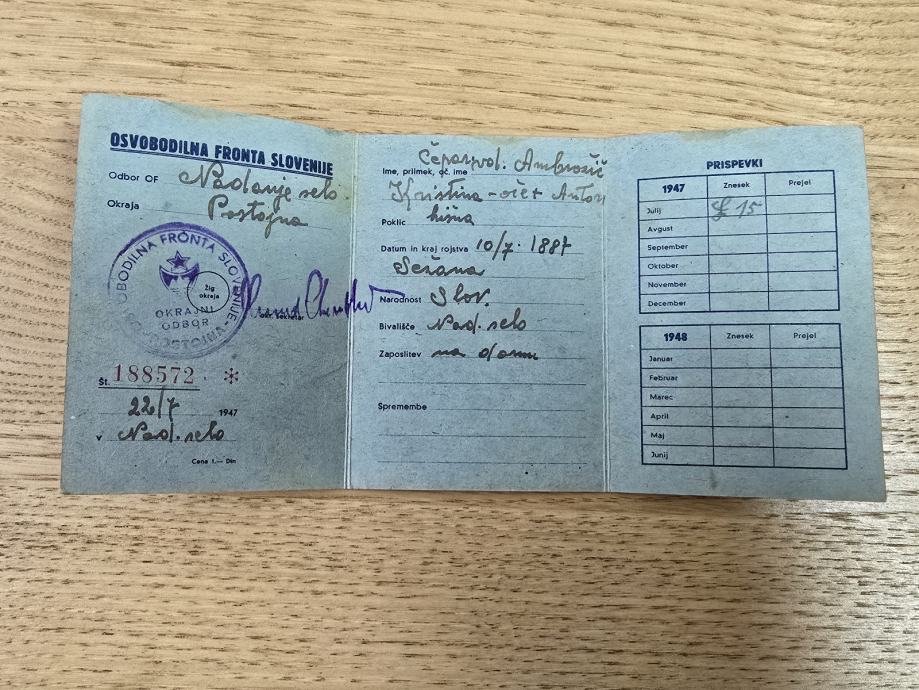 OSVOBODILNA FRONTA SLOVENIJE
Odbor OF Nadanje selo
Okraja Postojna
OSVOBODILNA FRONTA SLOVENIJE
OKRAJNI
ODBOR
POSTOJNA
Žig
okraja
okr. sekretar
Št. 188572 *
22/7 1947
v Nad. selo
Cena 1.— Din
Ime, priimek, oč. ime Ambrožič
Kristina - oče Anton
Poklic hišna
Datum in kraj rojstva 10/7. 1887
Sežana
Narodnost Slov.
Bivališče Nad. selo
Zaposlitev na domu
Spremembe
PRISPEVKI
1947 Znesek Prejel
Julij £ 15
Avgust
September
Oktober
November
December
1948 Znesek Prejel
Januar
Februar
Marec
April
Maj
Junij